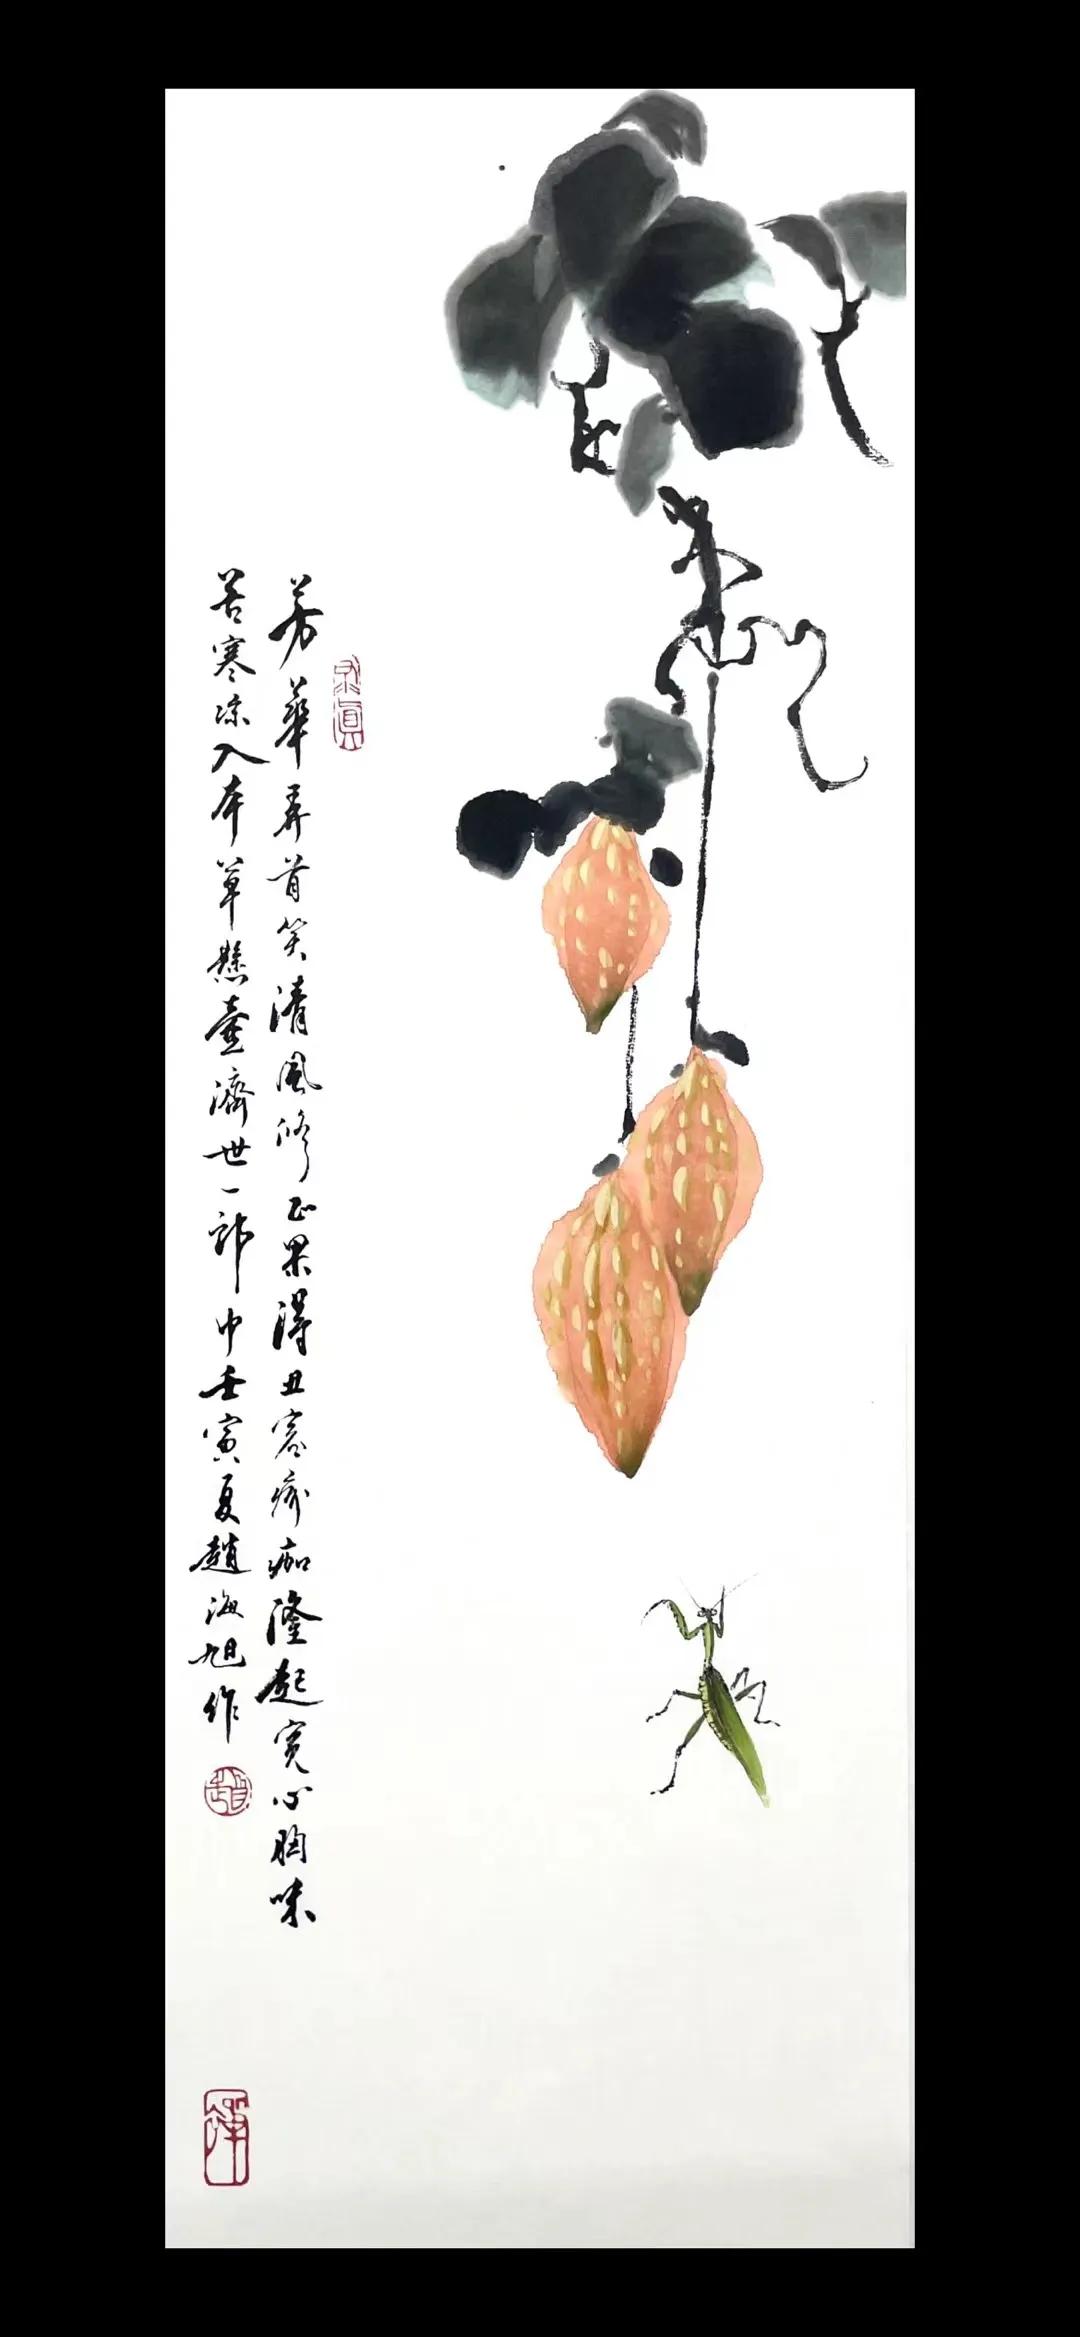 求真
芳華弄首笑清風修正果得丑容疥痂隆起寬心胸味
苦寒凉入本草懸壺濟世一郎中壬寅夏趙海旭作